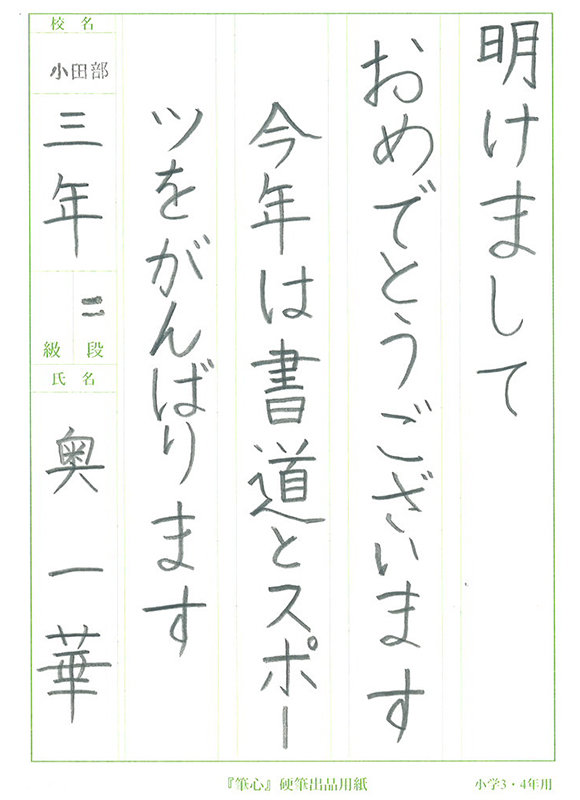 明けまして
おめでとうございます
今年は書道とスポー
ツをがんばります
校名
小田部
三年
二
級段
氏名
奥一華
『筆心』硬筆出品用紙
小学3・4年用